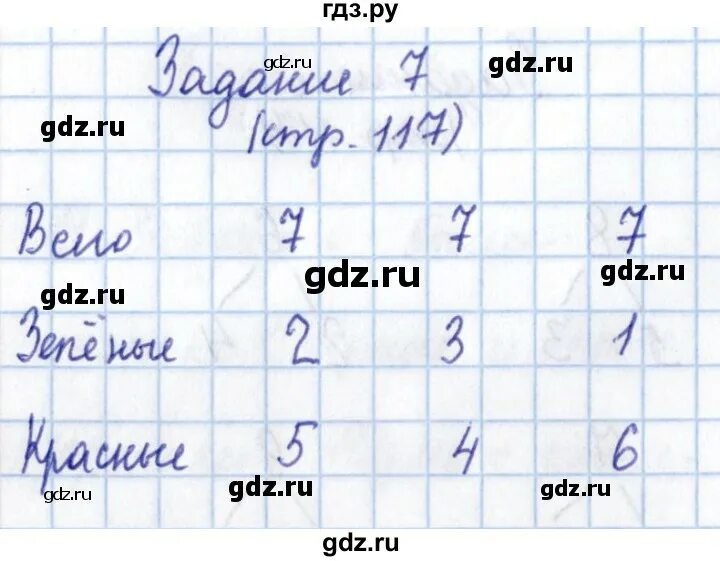 гдз.ру
Задание 7
gdz.ru
gdz.ru
(стр. 117)
gdz.ru
Всего 7 7 7
gdz.ru
gdz.ru
gdz.ru
Зелёные 2 3 1
Красные 5 4 6
gdz.ru
gdz.ru
gdz.ru
gdz.ru